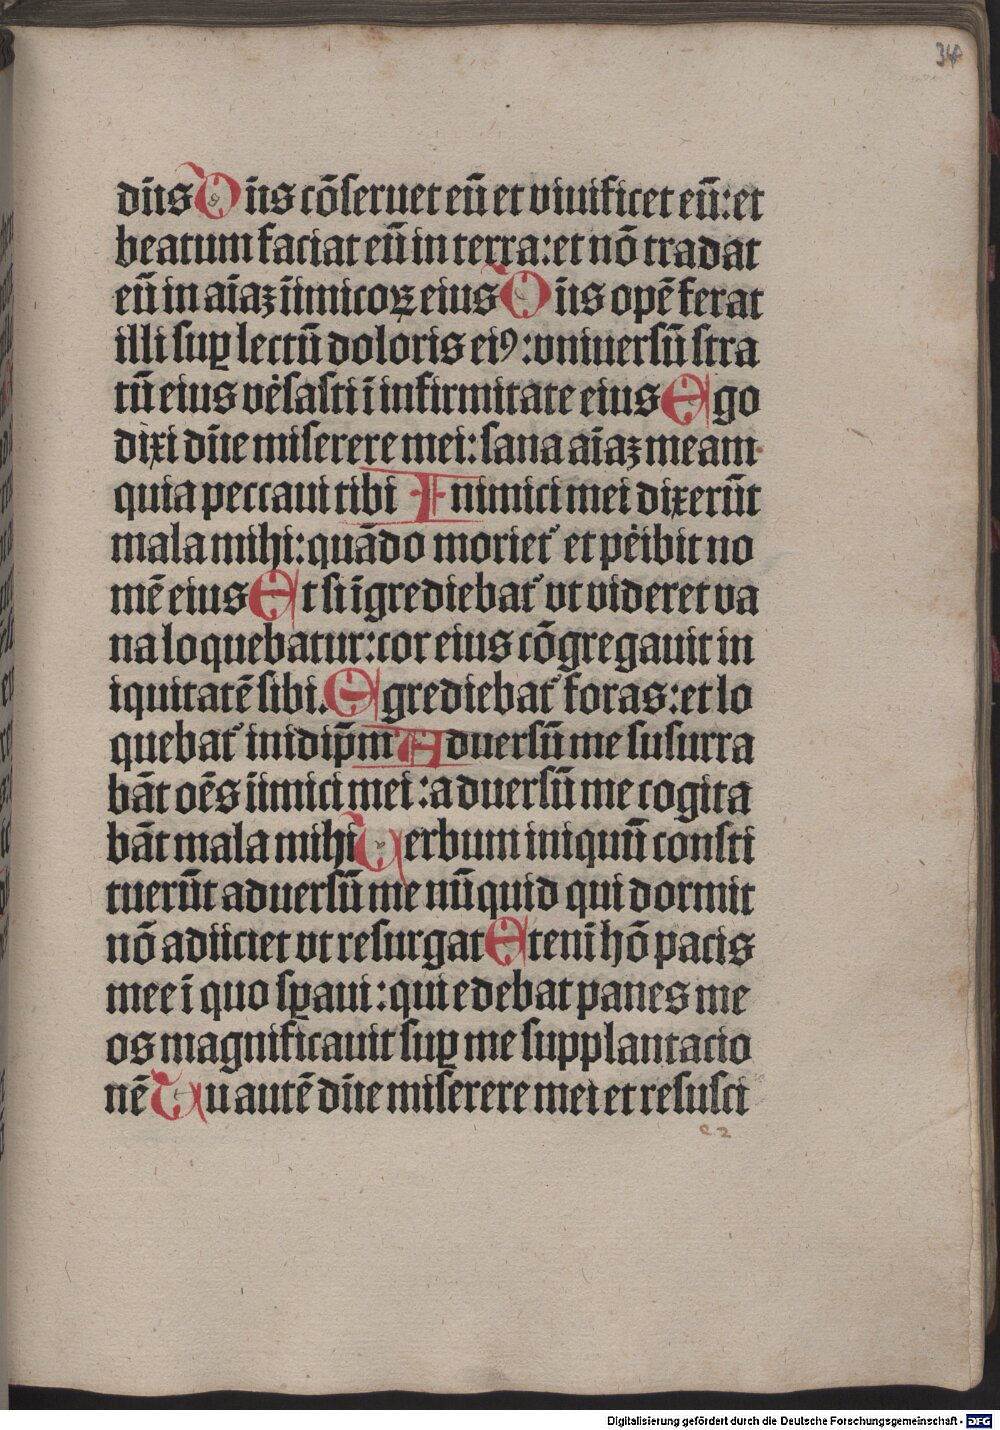 34
dn̄s Dn̄s cōseruet eū et viuificet eū: et
beatum faciat eū in terra: et nō tradat
eū in aīaꝫ īimicoꝝ eius Dn̄s opē ferat
illi suꝑ lectū doloris eiꝰ: vniuersū stra
tū eius v̾sasti ī infirmitate eius Ego
dixi dn̄e miserere mei: sana aīaꝫ meam
quia peccaui tibi Inimici mei dixerūt
mala mihi: quādo morieť et ꝑibit no
mē eius Et si īgrediebať vt videret va
na loquebatur: cor eius cōgregauit in
iquitatē sibi. Egrediebať foras: et lo
quebať in idip̄m Aduersū me susurra
bāt oēs īimici mei: aduersū me cogita
bāt mala mihi Verbum iniquū consti
tuerūt aduersū me nūquid qui dormit
nō adiiciet vt resurgat Etenī hō pacis
mee ī quo sꝑaui: qui edebat panes me
os magnificauit suꝑ me supplantacio
nē Tu autē dn̄e miserere mei et resusci
e2
Digitalisierung gefördert durch die Deutsche Forschungsgemeinschaft - DFG